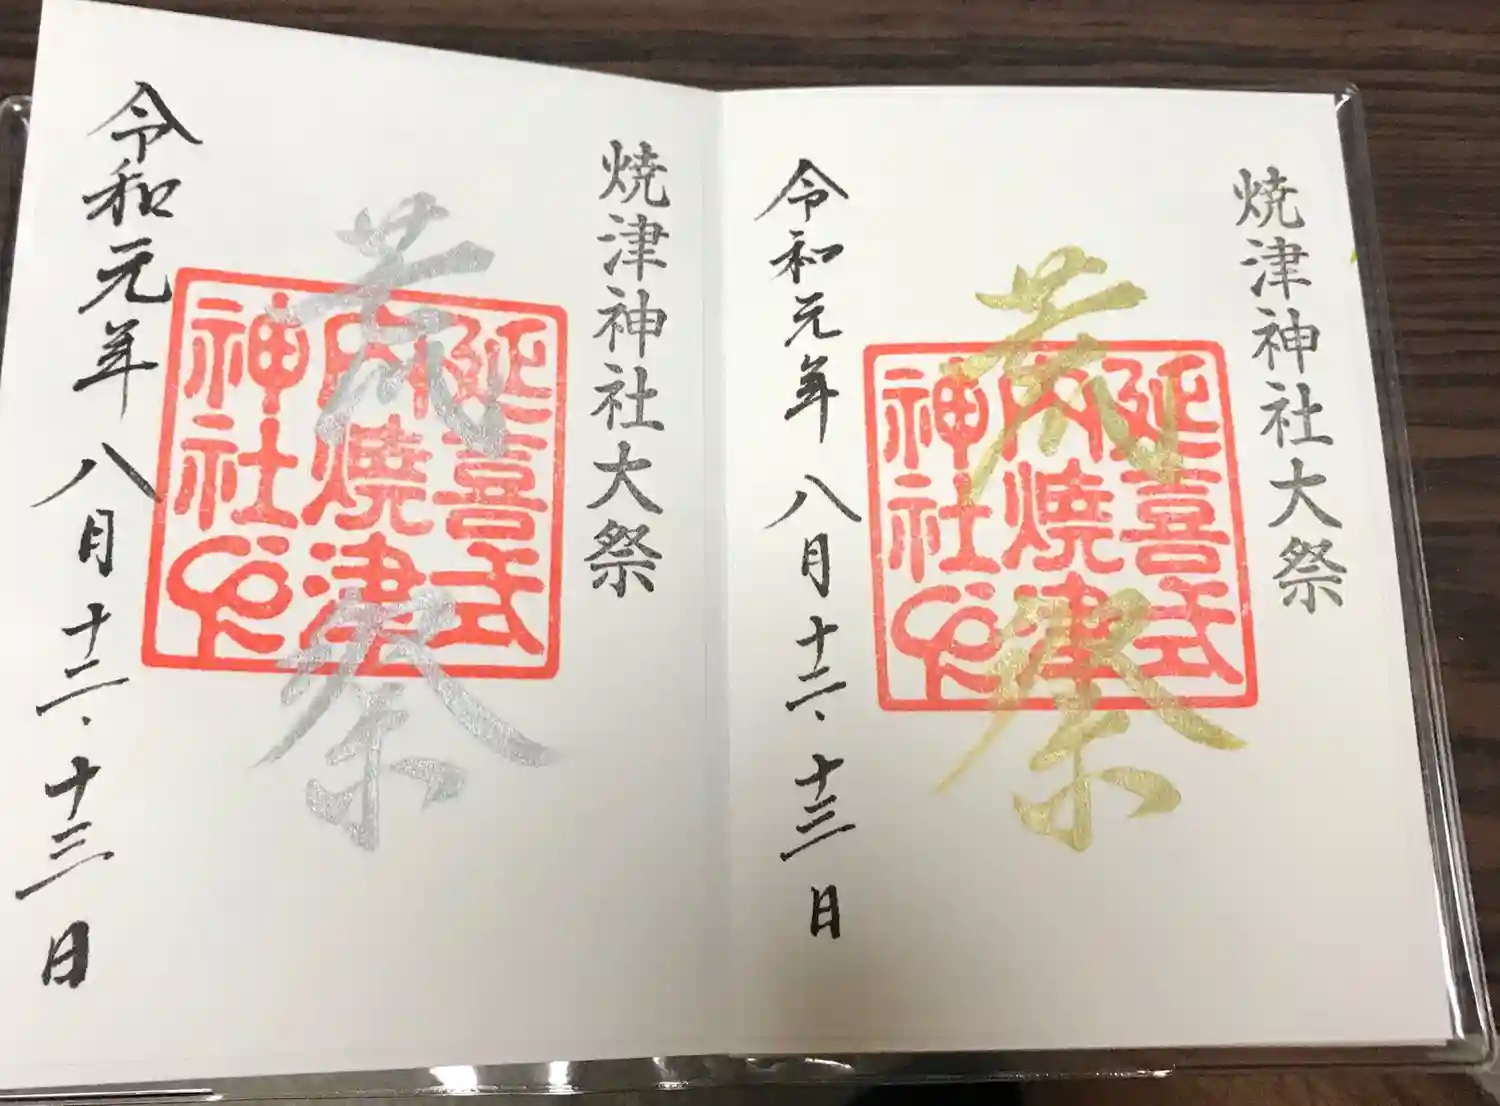 焼津神社大祭
荒祭
延喜式
内焼津
神社印
令和元年八月十二、十三日
焼津神社大祭
荒祭
延喜式
内焼津
神社印
令和元年八月十二、十三日